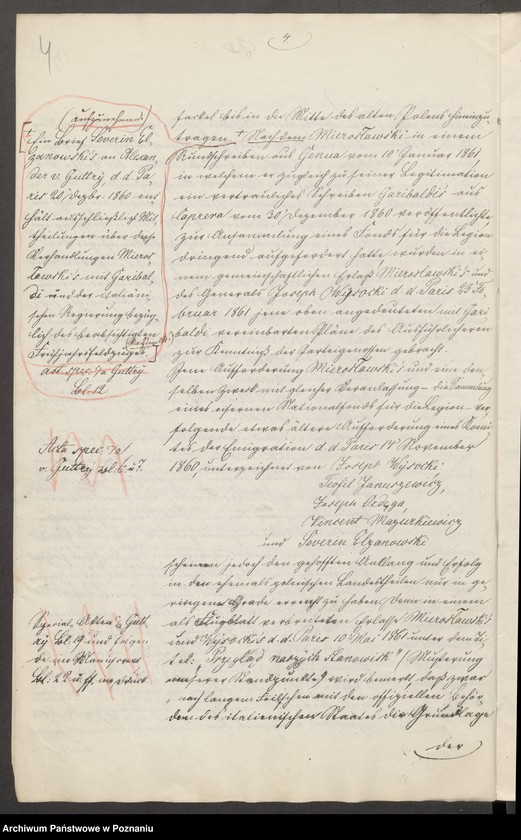 4
4.
(aufzunehmen)
Ein Brief Severin El-
zanowskis an Alexan-
der v. Guttry, d. d. Pa-
ris 20 Dezbr. 1860 ent-
hält ausschließlich Mit-
theilungen über diese
Verhandlungen Mieros-
lawskis mit Garibal-
di und der italieni-
schen Regierung bezüg-
lich des beabsichtigten
Frühjahrsfeldzuges
Act. spec. /a Guttry
Bl. 12
Acta spec. /a/
v. Guttry, bl. 6. u. 7.
Special Akten Gutt-
ry Bl. 19 und folgen-
de
Bl. 22 u. ff.
fackel bis in die Mitte des alten Polens hineinzu-
tragen. Nachdem Mierosławski in einem
Rundschreiben aus Genua vom 10 Januar 1861,
in welchem er zugleich zu seiner Legitimation
ein vertrauliches Schreiben Garibaldis aus
Caprera vom 30 Dezember 1860 veröffentlichte
zur Ansammlung eines Fonds für die Legion
dringend aufgefordert hatte wurden in ei-
nem gemeinschaftlichen Erlaß Mieroslawski's und
des Generals Joseph Wysocki d. d. Paris 23 Fe-
bruar 1861 jene oben angedeuteten mit Gari-
baldi vereinbarten Pläne des Ausführlicheren
zur Kenntniß der Parteigenossen gebracht.
Jene Aufforderung Mierosławski's und eine den-
selben Zweck mit gleicher Veranlassung – die Sammlung
eines eisernen Nationalfonds für die Legion – ver-
folgende etwas ältere Aufforderung eines Komi-
tes der Emigration d. d. Paris 14 November
1860, unterzeichnet von Joseph Wysocki
Teofil Januszewicz,
Joseph Ordęga,
Vincent Mazurkiewicz
und Severin Elzanowski
scheinen jedoch den gehofften Anklang und Erfolg
in den ehemals polnischen Landestheilen nur in ge-
ringerem Grade erreicht zu haben, denn in einem
als Flugblatt verbreiteten Erlasse Mierosławski's
und Wysocki's d. d. Paris 10 Mai 1861 unter dem Ti-
tel: Przegląd naszych stanowisk" (Musterung
unserer Standpunkte) wird bemerkt, daß zwar
„nach langem Feilschen mit den offiziellen Behör-
den des italienischen Staates die Grundlage
der
Archiwum Państwowe w Poznaniu